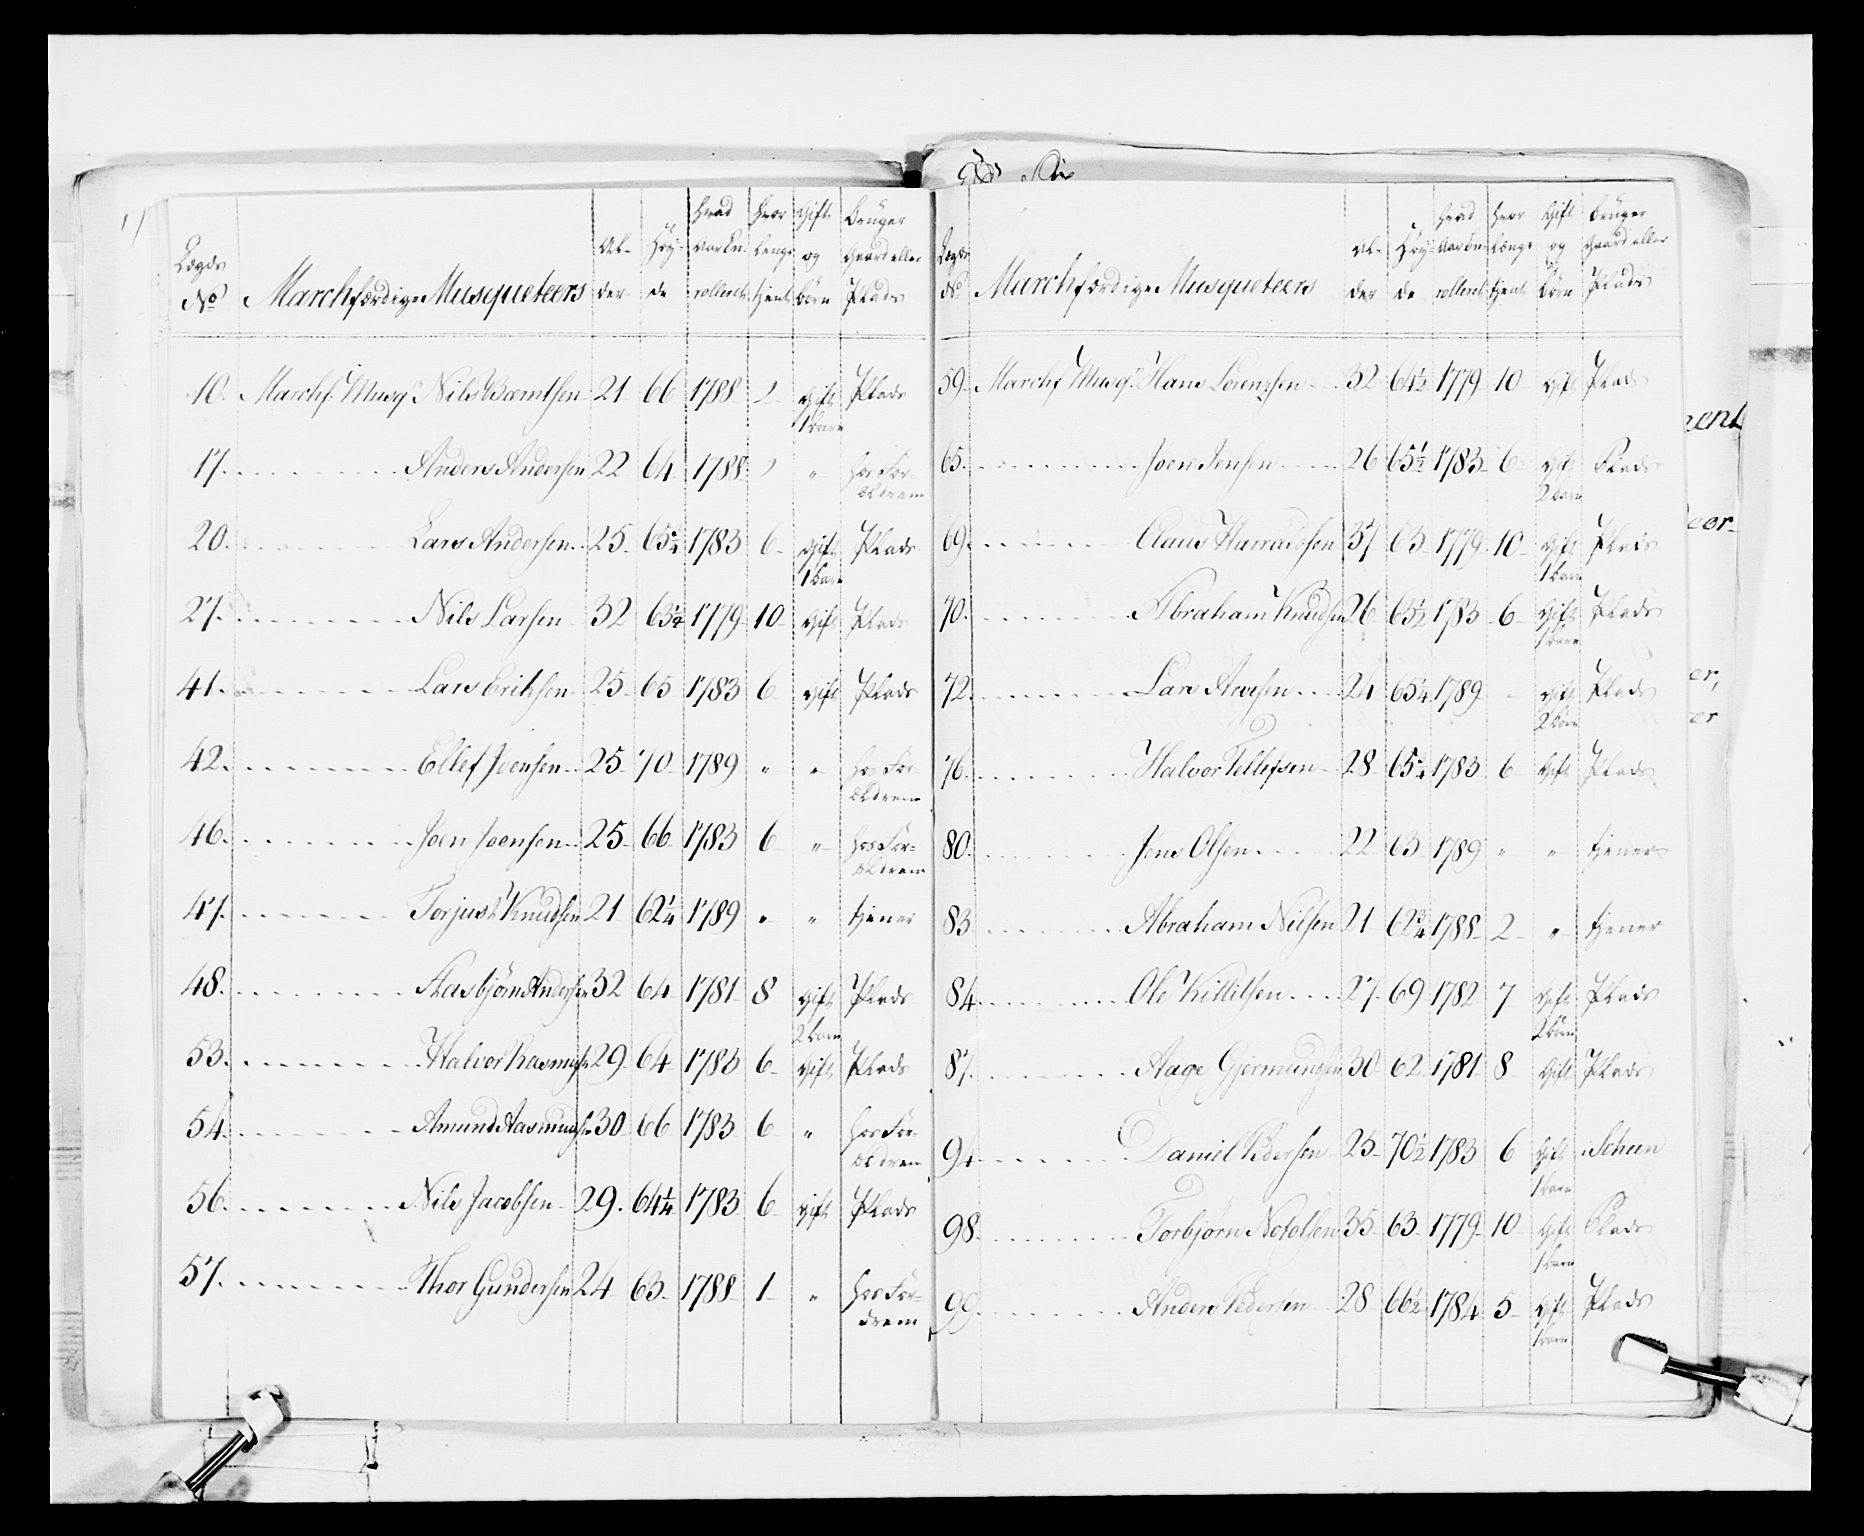 Lægds No Marchfærdige Musqueteers Al-der Höy-de hvad aar En-rolleret hvor Lenge tient Gift og børn bruger Gaard eller Plads
10. Marchf. Musqr Nils Berntsen 21 66 1788 2 gift 1 barn Plads
17. Anders Andersen 22 64 1788 2 " hos For-ældrene
20. Lars Andersen 25 65 1783 6 gift 1 barn Plads
27. Nils Larsen 32 63 1779 10 gift Plads
41. Lars Eritzsen 25 65 1783 6 gift Plads
42. Ellef Joensen 25 70 1789 " " hos For-ældrene
46. Joen Joensen 25 66 1783 6 " hos For-ældrene
47. Torjus Knudsen 21 62¼ 1789 " " tjener
48. Aasbjörn Andersen 32 64 1781 8 gift 2 børn Plads
53. Halvor Rasmusn 29 64 1783 6 gift Plads
54. Amund Aasmunds 30 66 1783 6 " hos For-ældrene
56. Nils Jacobsen 29. 64¼ 1783 6 gift Plads
57. Thor Gundersen 24 63 1788 1 " hos For-drene
Lægds No Marchfærdige Musqueteers Al-der Höy-de hvad aar En-rolleret hvor Længe tjent Gift og Börn bruger Gaard eller Plads
59. Marchf. Musqr Hans Lorentzsen 32 64½ 1779 10 gift Plads
65. Joen Jensen 26 65½ 1783 6 gift 2 børn Plads
69. Claus Harradsen 37 63 1779 10 gift 1 barn Plads
70. Abraham Knudsen 26 65½ 1783 6 gift 1 barn Plads
72. Lars Arvesen 24 65¼ 1789 gift 2 børn Plads
76. Halvor Tellefsen 28 65 1783 6 gift Plads
80. Jens Olsen 22 63 1789 " " tjener
83 Abraham Nilsen 21 62¾ 1788 2 " tjener
84. Ole Kittilsen 27 69 1782 7 gift 2 børn Plads
87. Aage Gjermundsen 30 62 1781 8 gift Plads
94 Daniel Pedersen 25 70½ 1783 6 gift 1 barn i Scheen
98. Torbjørn Notolsen 35 63 1779 10 gift 1 barn Plads
99. Anders Pedersen 28 66½ 1784 5 gift 1 barn Plads